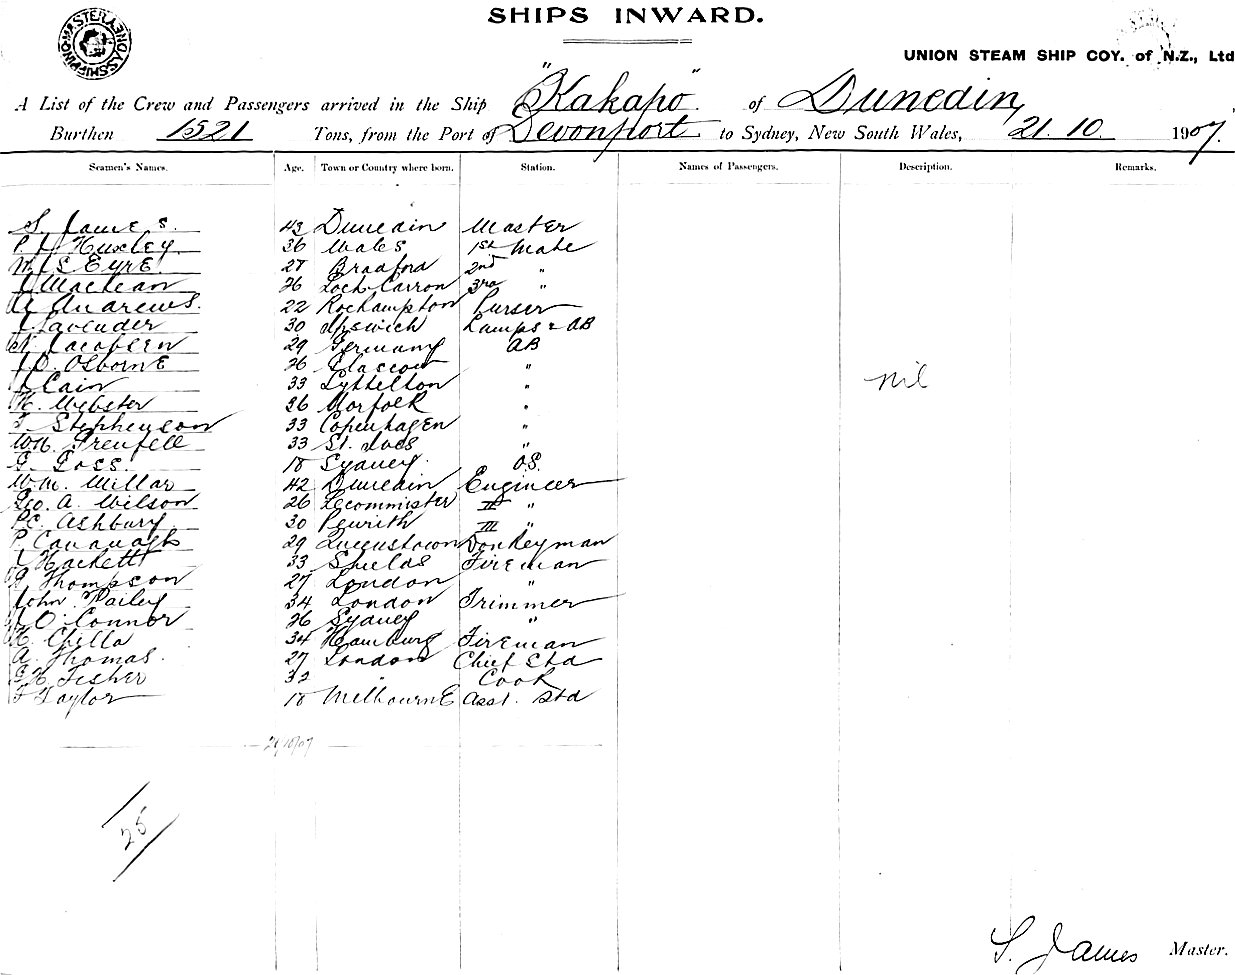 SHIPS INWARD.
SHIPPING MASTER
UNION STEAM SHIP COY. of N.Z., Ltd
A List of the Crew and Passengers arrived in the Ship "Kakapo" of Dunedin
Burthen 1521 Tons, from the Port of Devonport to Sydney, New South Wales, 21.10 1907.
Seamen's Names. Age. Town or Country where born. Station. Names of Passengers. Description. Remarks.
S. James. 43 Dunedin Master
Huxley 36 Wales 1st Mate
Eyre 27 Bradford 2nd "
Maclean 26 Loch Carron 3rd "
A Andrews. 22 Rochampton Purser
Lavender 30 Ipswich Lamps & AB
N Jacobsen 29 Germany AB
Osborne 26 Glascow "
Cain 33 Lyttelton " nil
H. Webster 36 Norfolk "
Stephenson 33 Copenhagen "
Wm. Grenfell 33 St. Ives "
G. Goss. 18 Sydney O.S.
W.M. Millar 42 Dunedin Engineer
Geo. A. Wilson 26 Lecommister II "
P.C. Ashbury 30 Penrith III "
P. Cavanagh 29 Queenstown Donkeyman
Hackett 33 Shields Fireman
Thompson 27 London "
John Pailey 34 London Trimmer
J O'Connor 26 Sydney "
H. Chilla 34 Hamburg Fireman
A. Thomas. 27 London Chief Std
G H Fisher 32 " Cook
F Taylor 18 Melbourne Asst. Std
21/10/07
25
S. James Master.